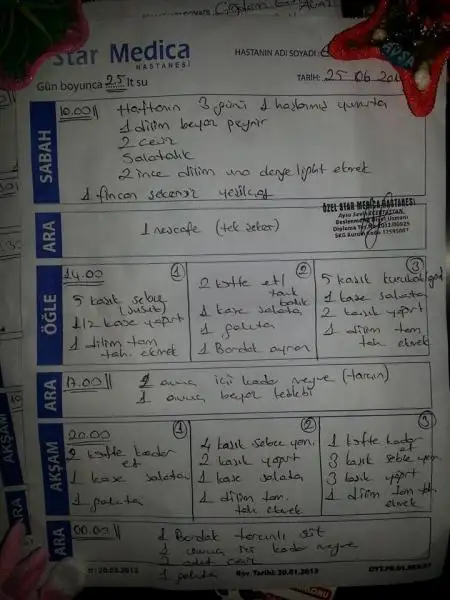 Star Medica
HASTANESİ
HASTANIN ADI SOYADI:
Gün boyunca 2.5 lt su
TARİH: 25 06 20
SABAH
10.00
Haftanın 3 günü 1 haşlanmış yumurta
1 dilim beyaz peynir
2 ceviz
Salatalık
2 ince dilim uno denge light ekmek
1 fincan şekersiz yeşilçay
ARA
1 nescafe (tek şeker)
ÖZEL STAR MEDICA HASTANESİ
ÖĞLE
14.00
1
5 kaşık sebze
1/2 kase yoğurt
1 dilim tam
tah. ekmek
2
2 köfte et/
tavuk
balık
1 kase salata
1 galeta
1 Bardak ayran
3
5 kaşık kurubak
1 kase salata
2 kaşık yoğurt
1 dilim tam
tah ekmek
ARA
17.00
avuç içi kadar meyve (tarçın)
1 avuç beyaz leblebi
AKŞAM
20.00
1
2 köfte kadar
et
1 kase salata
1 galeta
2
4 kaşık sebze yem.
2 kaşık yoğurt
1 kase salata
1 dilim tam.
tah ekmek
3
1 köfte kadar
et
3 kaşık sebze yem
3 kaşık yoğurt
1 dilim tam tah.
ekmek
ARA
00.00
1 Bardak tarçınlı süt
1 avuç içi kadar meyve
2 adet ceviz
1 galeta
20.03.2012
Rev. Tarihi: 20.01.2013